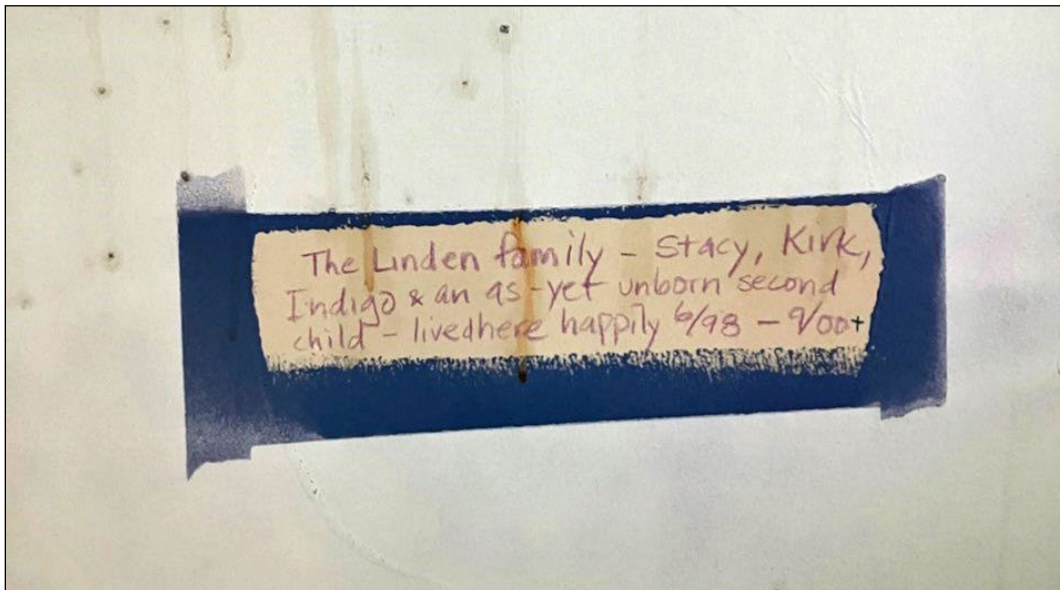 The Linden family - Stacy, Kirk,
Indigo & an as-yet unborn second
child - lived here happily 6/98 - 9/00+